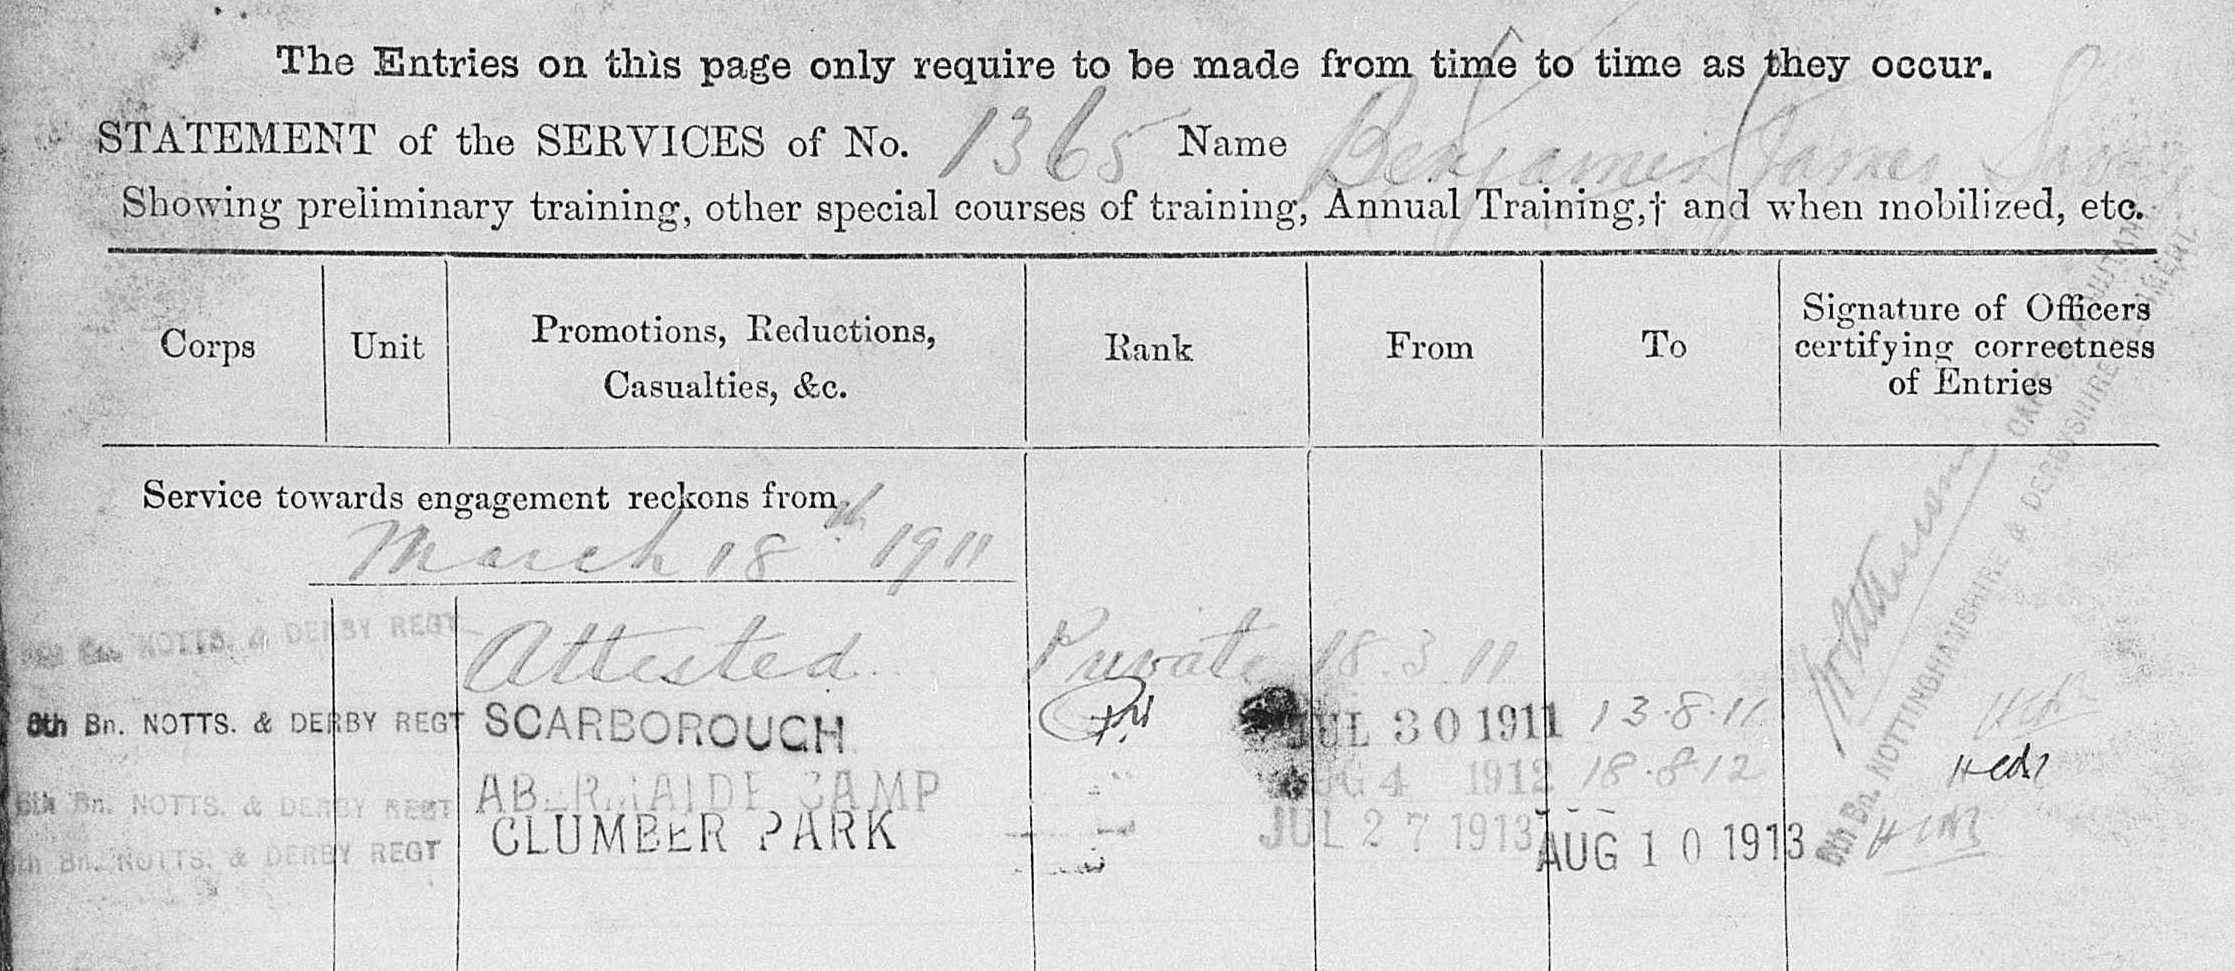 The Entries on this page only require to be made from time to time as they occur.
STATEMENT of the SERVICES of No. 1365 Name Benjamin James
Showing preliminary training, other special courses of training, Annual Training,† and when mobilized, etc.
Corps Unit Promotions, Reductions, Casualties, &c. Rank From To Signature of Officers certifying correctness of Entries
Service towards engagement reckons from
March 18th 1911
Bn. NOTTS. & DERBY REGT Attested Private 18.3.11
8th Bn. NOTTS. & DERBY REGT SCARBOROUGH JUL 30 1911 13.8.11
8th Bn. NOTTS. & DERBY REGT CAMP AUG 4 1912 18.8.12
8th Bn. NOTTS. & DERBY REGT CLUMBER PARK JUL 27 1913 AUG 10 1913
CAPT & ADJUTANT
8th Bn. NOTTINGHAMSHIRE & DERBYSHIRE REGIMENT.